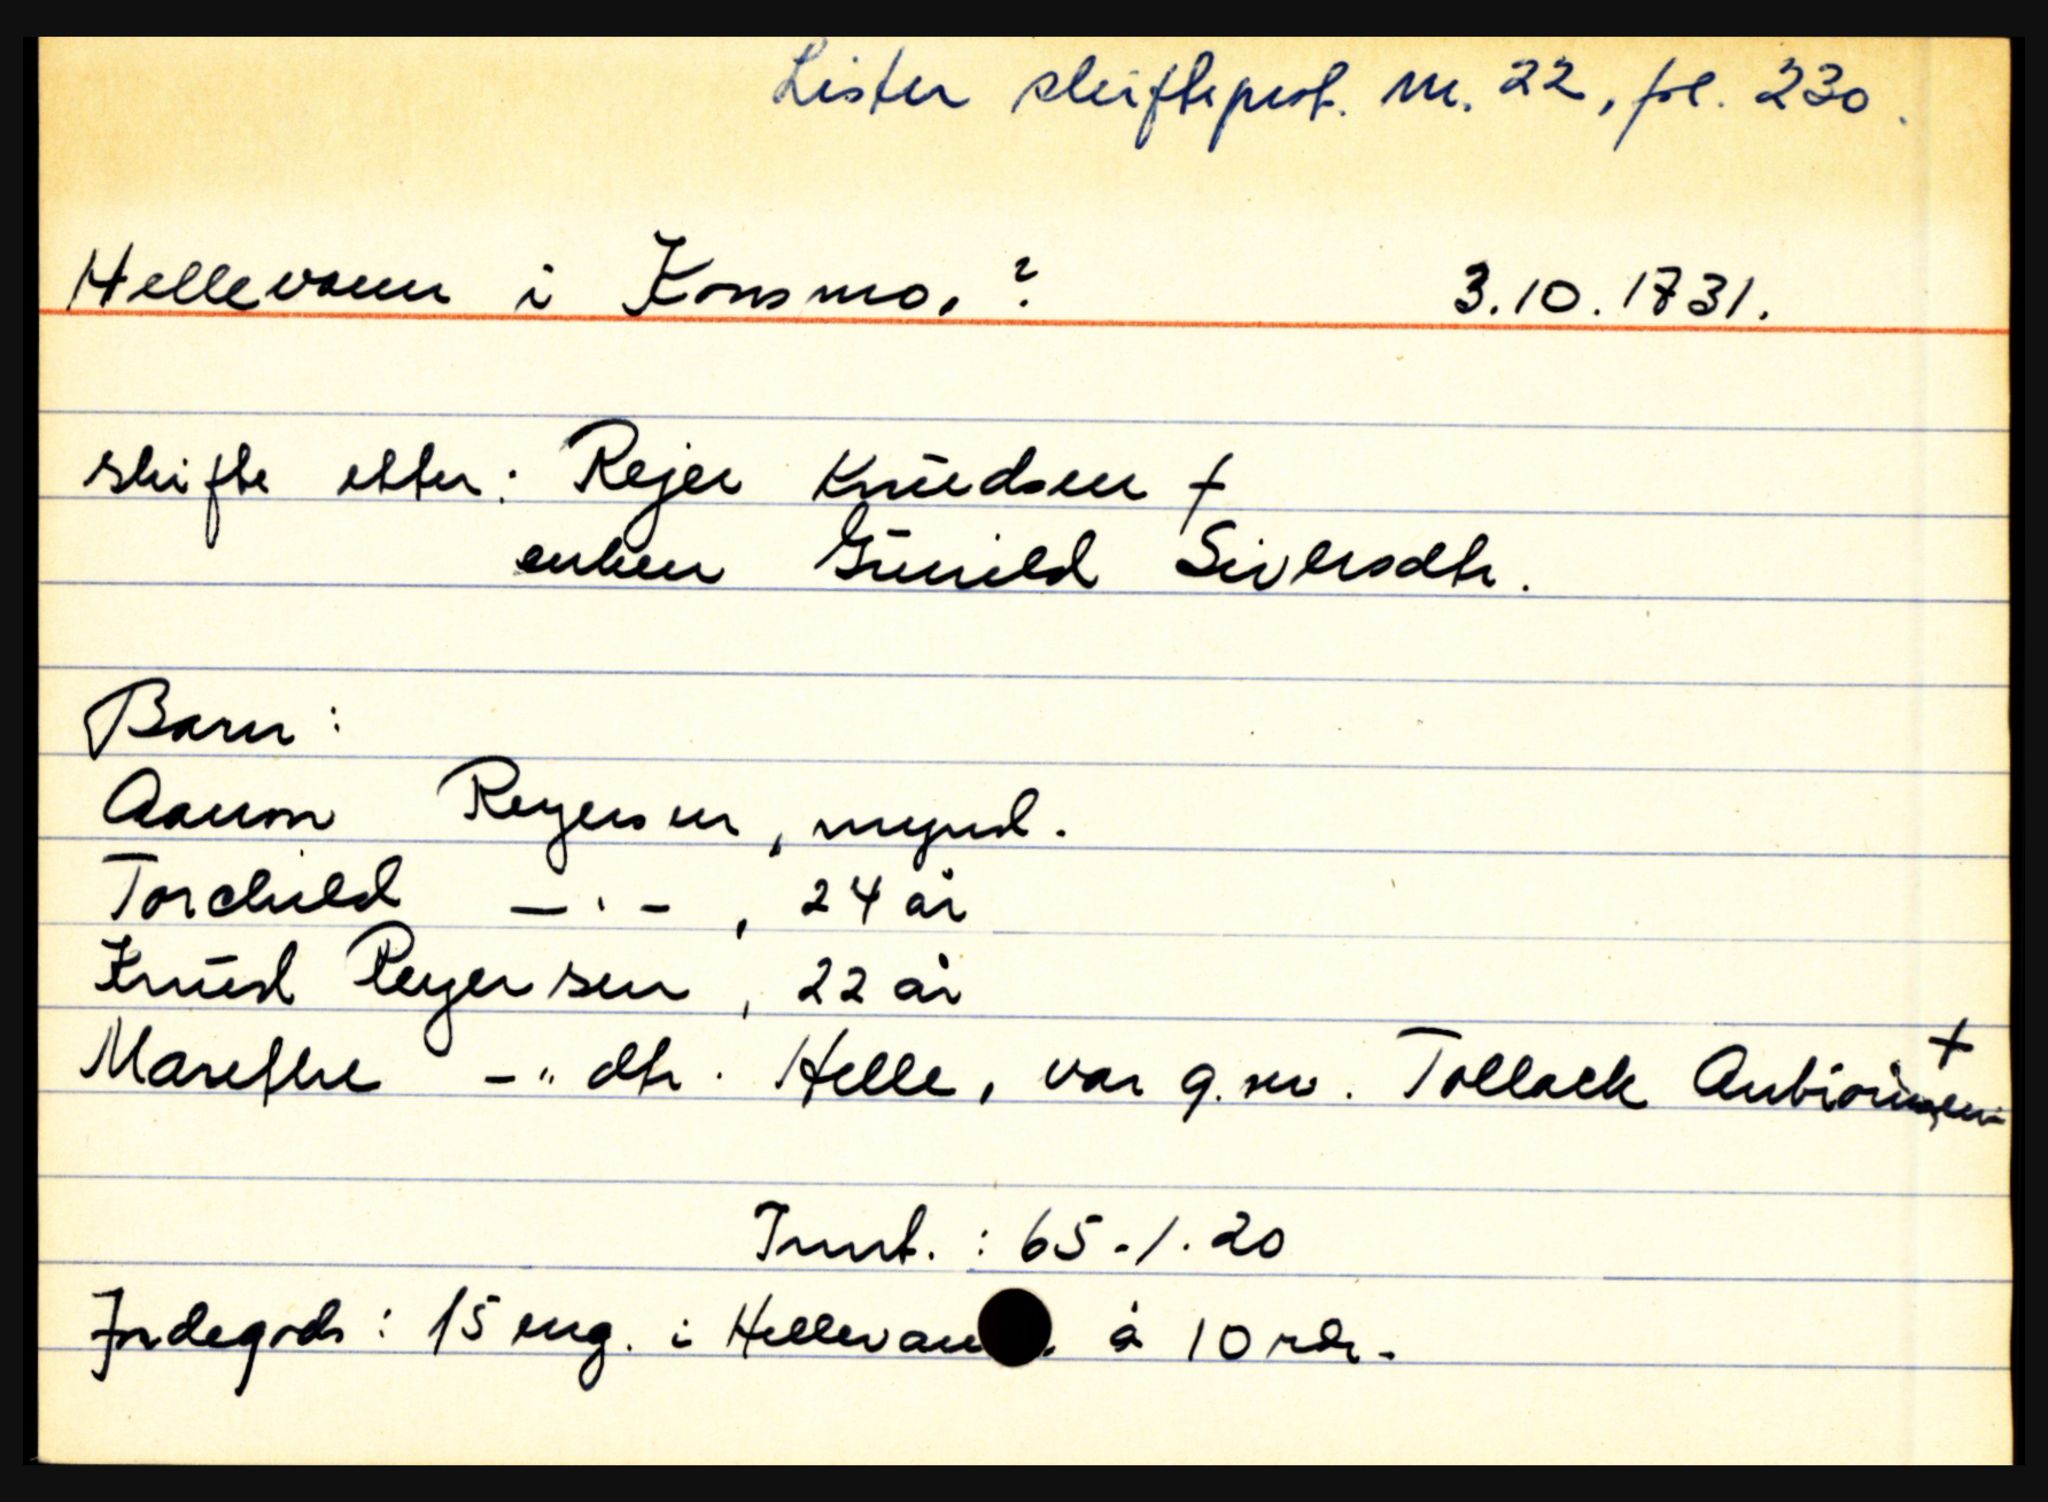 Lister skifteprot. nr. 22, fol. 230.
Hellevann i Konsmo. ? 3.10.1731.
skifte etter: Rejer Knudsen +
enken Gunild Siversdtr.
Barn:
Aanon Reyersen, mynd.
Torchild — · — , 24 år
Knud Reyersen , 22 år
Marethe —"— dtr. Helle, var g. m. Tollack Anbiørnsen +
Innt. : 65-1-20
Jordegods: 15 eng. i Hellevan . à 10 rdr.